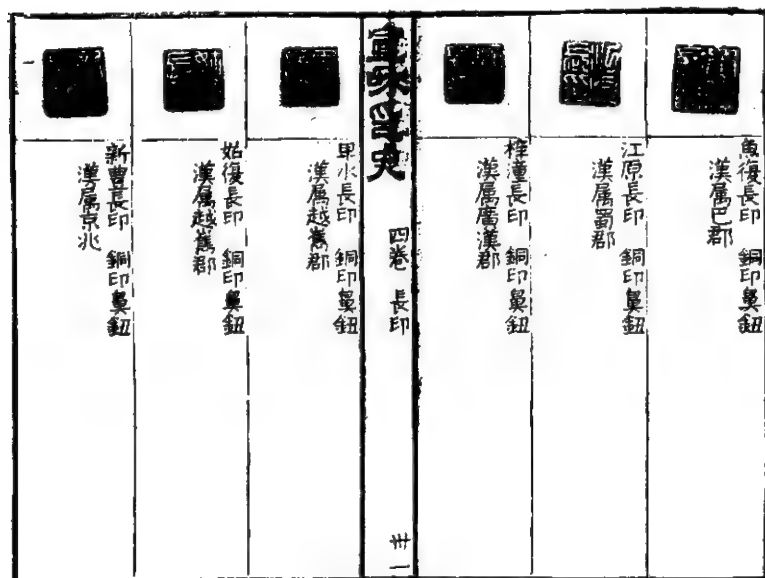 魚復長印 銅印鼻鈕
漢属巴郡
江原長印 銅印鼻鈕
漢属蜀郡
梓潼長印 銅印鼻鈕
漢属廣漢郡
宣咊印史 四卷 長印 卅一
卑水長印 銅印鼻鈕
漢属越嶲郡
姑復長印 銅印鼻鈕
漢属越嶲郡
新豊長印 銅印鼻鈕
漢属京兆